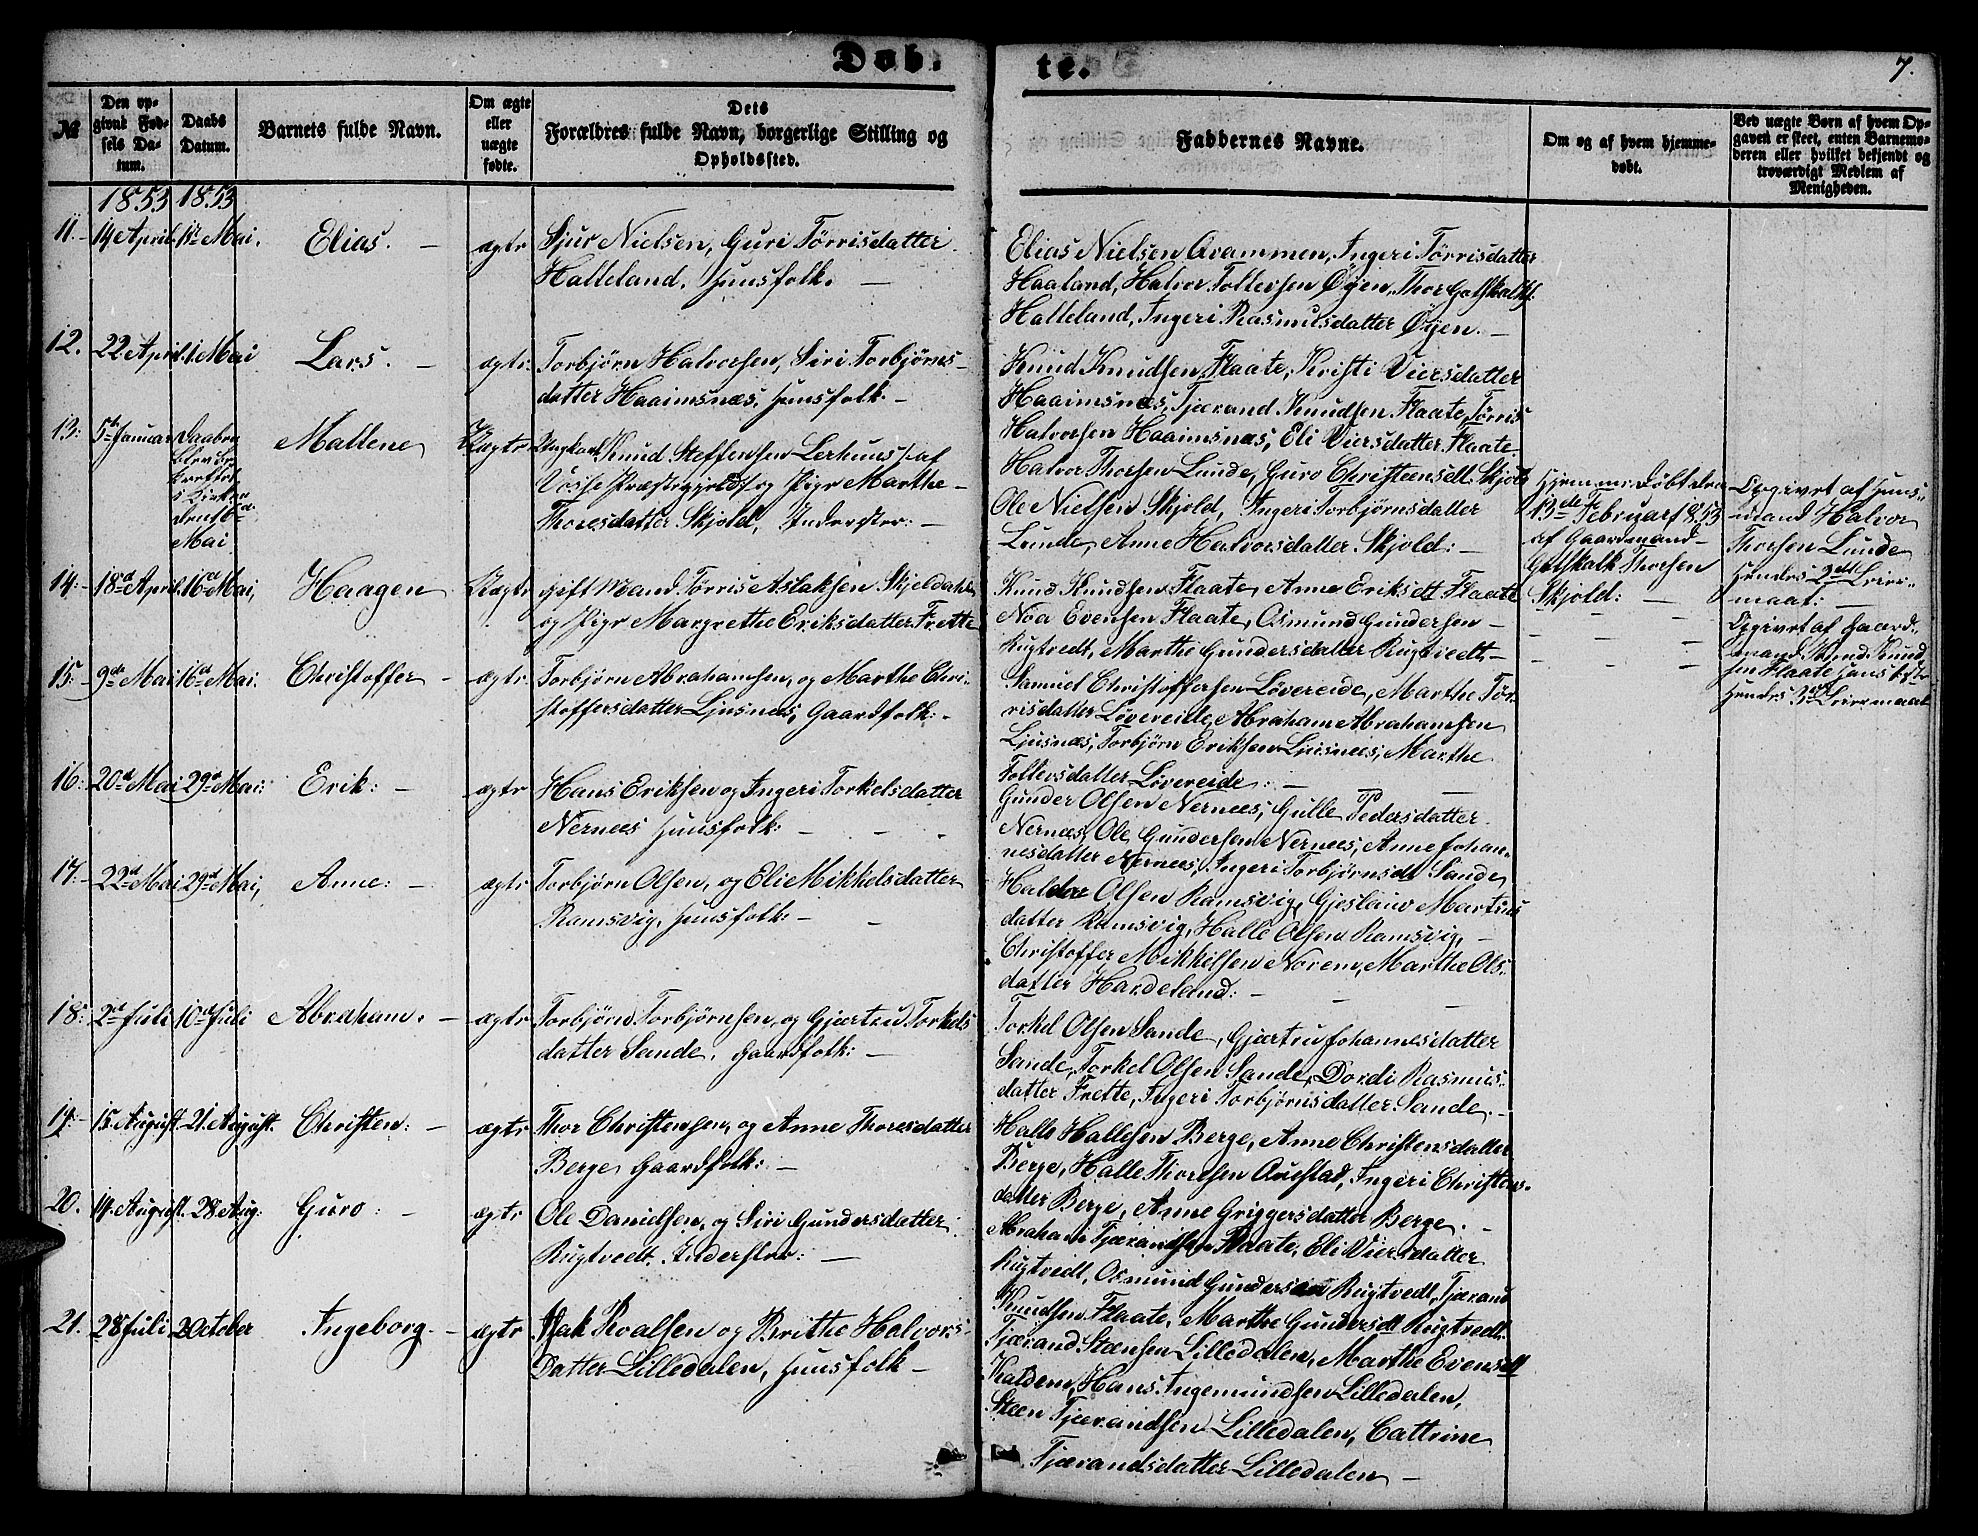 Døb-
te.
7.
№
Den op-
givne Fød-
sels Da-
tum.
Daabs
Datum.
Barnets fulde Navn.
Om ægte
eller
uægte
fødte.
Dets
Forældres fulde Navn, borgerlige Stilling og
Opholdssted.
Faddernes Navne.
Om og af hvem hjemme-
døbt.
Ved uægte Børn af hvem Op-
gaven er skeet, enten Barnemo-
deren eller hvilket bekjendt og
troværdigt Medlem af
Menigheden.
1853 1853
11. 14 April 1ste Mai. Elias. ægte Sjur Nielsen, Guri Tørrisdatter
Halleland. Huusfolk.
Elias Nielsen Qvammen, Ingeri Tørrisdatter
Haaland, Halvor Tollevsen Øyen, Thor
Halleland, Ingeri Rasmusdatter Øyen.
12. 22 April 1 Mai Lars. ægte Torbjørn Halvorsen, Siri Torbjørns-
datter Haaimsnæs, Huusfolk
Knud Knudsen Flaate, Kristi Viersdatter
Haaimsnæs, Tjærand Knudsen Flaate, Tørris
Halvorsen Haaimsnæs, Eli Viersdatter Flaate
13. 5te Januar Daaben
blev be
i Kirken
den
Mai
Mallene Uægte Ungkarl Knud Steffensen Lerhuus af
Vosse Præstegjeld og Pige Marthe
Thoresdatter Skjold, Inderster:
Halvor Thorsen Lunde, Guro Christensdt Skjold
Ole Nielsen Skjold, Ingeri Torbjørnsdatter
Lunde, Anne Halvorsdatter Skjold:
Hjemmedøbt den
13de Februar 1853
af Gaardmand
Gotskalk Thorsen
Skjold:
Opgivet af Huus-
mand Halvor
Thorsen Lunde
Hendes 2det Leier-
maal:
14. 18de April 16de Mai, Haagen Uægte gift Mand Tørris Aslaksen Skjoldahl,
og Pige Margrethe Eriksdatter Frette
Knud Knudsen Flaate, Anne Eriksdt Flaate
Noa Evensen Flaate, Osmund Gundersen
Rugtvedt, Marthe Gundersdatter Rugtvedt,
Opgivet af Gaard-
mand Knud Knud
sen Flaate
Hendes Leiermaal
15. 9de Mai 16de Mai. Christoffer ægte Torbjørn Abrahamsen, og Marthe Chri-
stoffersdatter Ljusnæs, Gaardfolk:
Samuel Christoffersen Løvereide, Marthe Tør-
risdatter Løvereide, Abraham Abrahamsen
Ljusnæs, Torbjørn Eriksen Ljusnæs, Marthe
Tollevsdatter Løvereide:
16. 20de Mai 29de Mai: Erik: ægte Hans Eriksen og Ingeri Torkelsdatter
Nernæs Huusfolk:
Gunder Olsen Nernæs, Gulle Pedersdatter
Nernæs, Ole Gundersen Nernæs, Anne Johan-
nesdatter Nernæs, Ingeri Torbjørnsdt Sande
17. 22de Mai 29de Mai, Anne: ægte Torbjørn Olsen, og Eli Mikkelsdatter
Ramsvig, Huusfolk
Haldor Olsen Ramsvig, Martines
datter Ramsvig, Halle Olsen Ramsvig,
Christoffer Mikkelsen Norem, Marthe Ols-
datter Hardeland:
18: 2de Juli 10de Juli Abraham. ægte Torbjørn Torbjørnsen, og Gjærtru Torkels
datter Sande. Gaardfolk:
Torkel Olsen Sande, Gjærtru Johannesdatter
Sande, Torkel Olsen Sande, Dordi Rasmus-
datter Frette, Ingeri Torbjørnsdatter Sande.
19. 15. August. 21. August. Christen: ægte Thor Christensen, og Anne Thoresdatter
Berge Gaardfolk:
Halle Hallesen Berge, Anne Christensdatter
Berge, Halle Thorsen Austad, Ingeri Christens-
datter Berge, Anne Griggersdatter Berge.
20. 14. August. 28 Aug: Guro: ægte Ole Danielsen, og Siri Gundersdatter
Rugtvedt. Inderster:
Abraham Tjærandsen Flaate, Eli Viersdatter
Rugtvedt, Osmund Gundersen Rugtvedt, Tjærand
Knudsen Flaate, Marthe Gundersdt Rugtvedt.
21. 28 Juli 2 October Ingeborg. ægte Isak Roalsen og Brithe Halvors-
datter Lilledalen, Huusfolk
Tjærand Steensen Lilledalen, Marthe Evensdt
Kaldem, Hans Ingemundsen Lilledalen,
Steen Tjærandsen Lilledalen, Cattrine
Tjærandsdatter Lilledalen